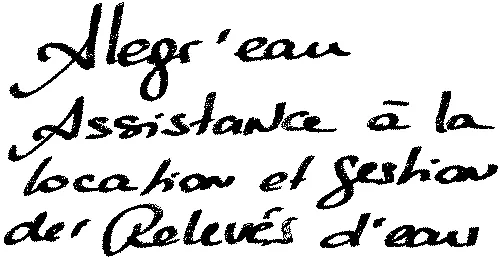 Alegr'eau
Assistance à la
location et gestion
de, Relevés d'eau